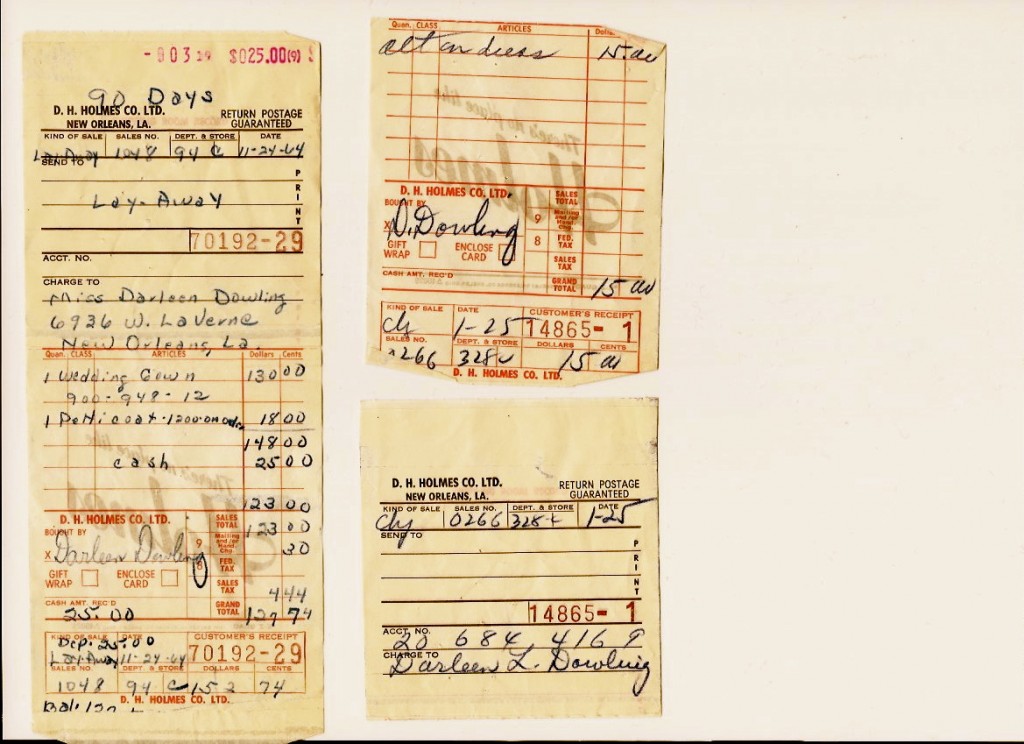 -003 19 $025.00(9)
90 Days
D. H. HOLMES CO. LTD.
NEW ORLEANS, LA.
RETURN POSTAGE
GUARANTEED
KIND OF SALE SALES NO. DEPT. & STORE DATE
Lay Away 1048 94 C 11-24-64
SEND TO
PRINT
Lay-Away
70192-29
ACCT. NO.
CHARGE TO
Miss Darleen Dowling
6936 W. LaVerne
New Orleans, La.
Quan. CLASS ARTICLES Dollars Cents
1 Wedding Gown 130 00
900-948-12
1 Petticoat-1200- 18 00
148 00
cash 25 00
123 00
D. H. HOLMES CO. LTD. SALES TOTAL 123 00
BOUGHT BY
X Darleen Dowling
9 Mailing and/or Hand. Chg. 30
8 FED. TAX
GIFT WRAP ENCLOSE CARD
SALES TAX 4 44
CASH AMT. REC'D GRAND TOTAL 127 74
25.00
KIND OF SALE DATE CUSTOMER'S RECEIPT
Dep. 25.0
Lay Away 11-24-64 70192-29
SALES NO. DEPT. & STORE DOLLARS CENTS
1048 94 C 152 74
D. H. HOLMES CO. LTD.
Quan. CLASS ARTICLES
alt on dress 15.00
There's no place like
Holmes
D. H. HOLMES CO. LTD. SALES TOTAL
BOUGHT BY
X D. Dowling
9 Mailing and/or Hand. Chg.
8 FED. TAX
GIFT WRAP ENCLOSE CARD
SALES TAX
CASH AMT. REC'D GRAND TOTAL 15 00
KIND OF SALE DATE CUSTOMER'S RECEIPT
Chg 1-25 14865-1
SALES NO. DEPT. & STORE DOLLARS CENTS
0266 328 C 15 00
D. H. HOLMES CO. LTD.
D. H. HOLMES CO. LTD.
NEW ORLEANS, LA.
RETURN POSTAGE
GUARANTEED
KIND OF SALE SALES NO. DEPT. & STORE DATE
Chg 0266 328-C 1-25
SEND TO
PRINT
14865-1
ACCT. NO.
20 684 416 9
CHARGE TO
Darleen L. Dowling